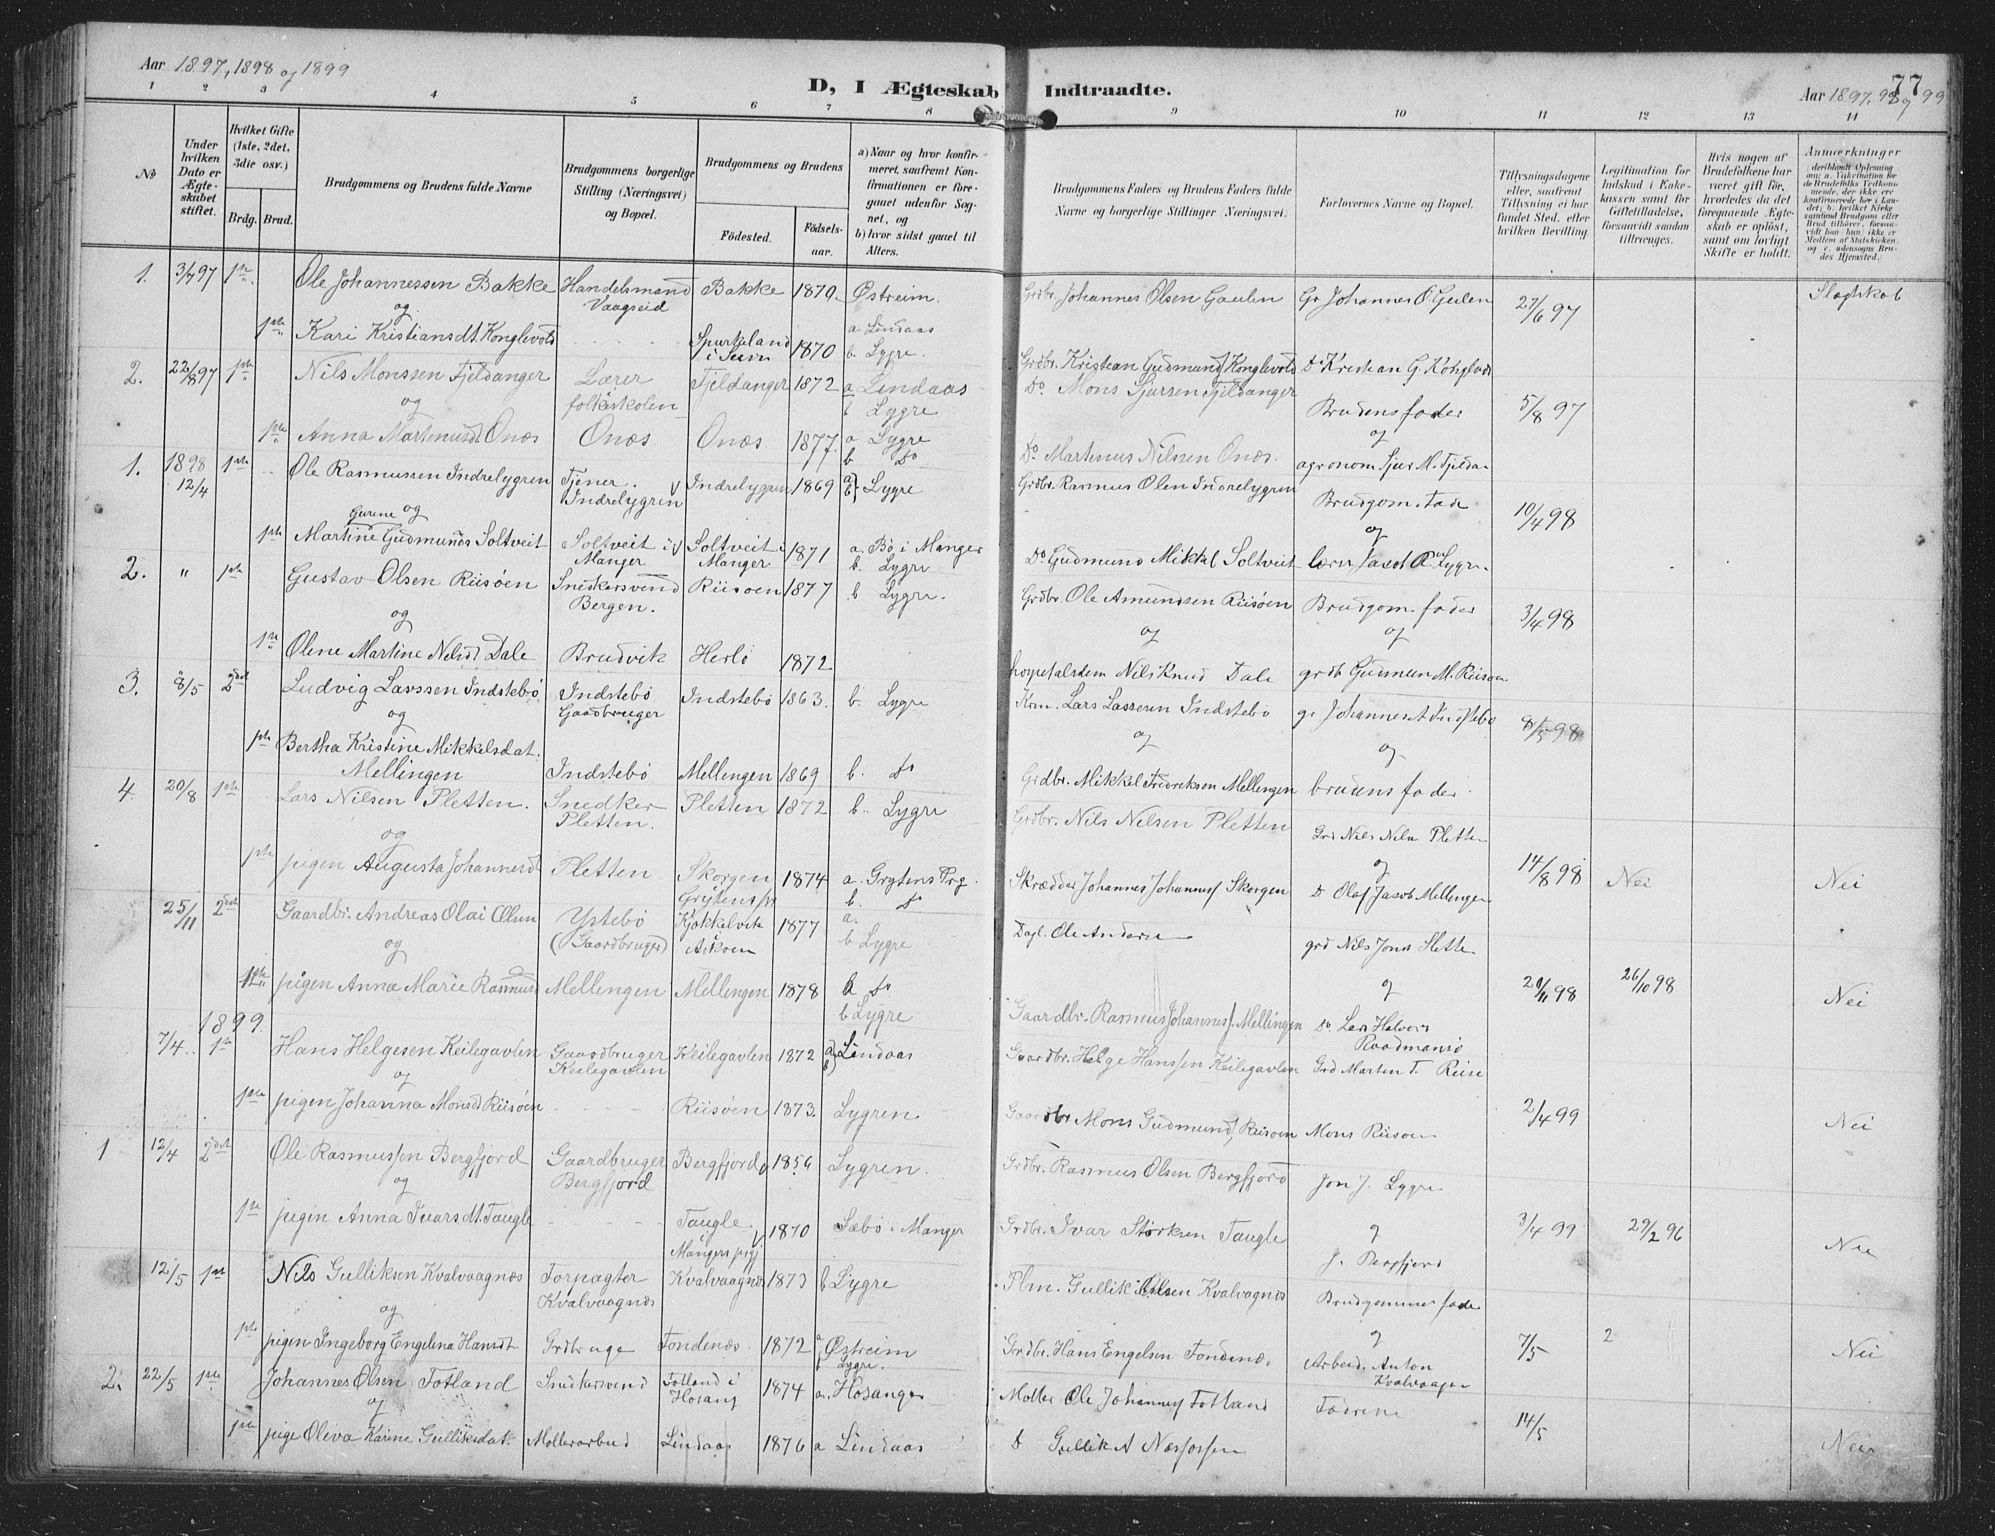 Aar 1897, 1898 og 1899
D, I Ægteskab Indtraadte.
Aar 1897, 98 og 99
77
1 2 3 4 5 6 7 8 9 10 11 12 13 14
No
Under hvilken Dato er Ægteskabet stiftet.
Hvilket Gifte (1ste, 2det, 3die osv.)
Brdg. Brud.
Brudgommens og Brudens fulde Navne
Brudgommens borgerlige Stilling (Næringsvei) og Bopæl.
Brudgommens og Brudens
Fødested.
Fødselsaar.
a) Naar og hvor konfirmeret, saafremt Konfirmationen er foregaaet udenfor Sognet, og
b) hvor sidst gaaet til Alters.
Brudgommens Faders og Brudens Faders fulde Navne og borgerlige Stillinger Næringsvei.
Forlovernes Navne og Bopæl.
Tillysningsdagene eller, saafremt Tillysning ei har fundet Sted. efter hvilken Bevilling
Legitimation for Indskud i Enkekassen samt for Giftetilladelse, forsaavidt saadan tiltrænges.
Hvis nogen af Brudefolkene har været gift før, hvorledes da det foregaaende Ægteskab er opløst, samt om lovligt Skifte er holdt.
Anmærkninger (deriblandt Oplysning om: a. Vakcination for de Brudefolks Vedkommende, der ikke ere konfirmerede her i Landet; b. hvilket Kirkesamfund Brudgom eller Brud tilhører, forsaavidt han (hun) ikke er Medlem af Statskirken, og c. udensogns Brudes Hjemsted.)
1. 3/7 97 1ste Ole Johannessen Bakke Handelsmand Vaagseid Bakke 1870. Østreim. Grdbr. Johannes Olsen Gaulen Gr Johannes O Gulen 27/6 97 Slegtskab
og
1ste Kari Kristiansdt. Konglevold Spurkeland i Sævn 1870 a Lindaas b. Lygre. Grdbr. Kristean Gudmunds Konglevold Do Kristean G. Konglevold
2. 22/8 97 1ste Nils Monssen Fjeldanger Lærer folkeskolen Fjeldanger 1872 a Lindaas b Lygre Do Mons Sjursen Fjeldanger Brudens fader 5/8 97
og
1ste Anna Martinusdt Onæs Onæs Onæs 1877. a Lygre b Do Do Martenus Nilsen Onæs. og agronom Sjur M. Fjeldan
1. 1898 12/4 1ste Ole Rasmussen Indrelygren Tjener. Indrelygren Indrelygren 1869 a) b) Lygre Grdbr. Rasmus Olen Indrelygren Brudgom. fade 10/4 98
Gurine og
1ste Martine Gudmunds Soltveit Soltveit i Manger Soltveit i Manger 1871 a. Bø i Manger b. Lygre Do Gudmund Mikkel Soltveit og lærer Lygre.
2. " 1ste Gustav Olsen Riisøen Snedkersvend Bergen. Riisoen 1877 b Lygre. Grdbr. Ole Amundsen Riisøen Brudgom. fader 3/4 98
og
1ste Olene Martine Nelsdt Dale Brudvik Herlø 1872 Nils Knud Dale grdb Gudmun M. Riisoen
3. 8/5 2det Ludvig Larssen Indstebø Indstebø Gaardbruger Indstebø 1863. b. Lygre Krm. Lars Lassen Indstebø gr Johannes A Indstebø 8/5 98
og
1ste Bertha Kristine Mikkelsdat. Mellingen Indstebø Mellengen 1869 b. Do Grdbr. Mikkel Fredreksen Mellengen brudens fader.
4. 20/8 1ste Lars Nilsen Pletten. Snedker Pletten. Pletten 1872 b. Lygre Grdbr. Nils Nelsen Pletten Grd Nils Nelsn Plette 14/8 98
og
1ste pigen Augusta Johannesdt Pletten Skorgen Grytens 1874 a. Grytens Prg. b. Do Skrædder Johannes Johannes/ Skorgen og D Olaf Jacob Mellengen Nei Nei
25/11 2det Gaardbr. Andreas Olai Olsen Ystebø (Gaardbruger) Kjøkkelvik i Askoen 1877 a. b Lygre Dagl. Ole Anders grd Nils Jonsn Slette
og
1ste pigen Anna Marie Rasmusd Mellengen Mellengen 1878 a Do b Lygre Gaardbr. Rasmus Johannes/. Mellingen og Do Lars Halvors Raadmansø 20/11 98 26/10 98 Nei
1899.
7/4. 1ste Hans Helgesen Keilegavlen Gaardbruger Keilegavlen Keilegavlen 1872 a) b) Lindaas Gaardbr. Helge Hanssen Keilegavlen Grd Marten T. Reise
og
1ste pigen Johanna Monsd Riisøen Riisøen 1873. Lygren Gaardbr Mons Gudmunds Riisøen Mons Riisøen 2/4 99 Nei
1 12/4 2det Ole Rasmussen Bergfjord Gaardbruger Bergfjord Bergfjord 1856 Lygren. Grdbr. Rasmus Olsen Bergfjord Jon J. Lygre
og
1ste pigen Anna Ivarsdt. Taugle Taugle i Mangers 1870 Sæbø i Manger Grdbr. Ivar Størksen Taugle og J. Bergfjord 3/4 99 29/2 96 Nei
12/5 1ste Nils Gulliksen Kvalvaagnæs Forpagter Kvalvaagnæs Kvalvaagnæs 1873 b Lygre Plm. Gullik Olsen Kvalvagnes Brudgommens fade
og
1ste pigen Ingeborg Engelina Hansdt. Grdbruge Fondenæs. 1872 a Østreim b Lygre. Grdbr. Hans Engelsen Fondenæs og Arbeid. Anton Kvalvaagen 7/5 2 Nei
2. 22/5 1ste Johannes Olsen Fotland Snedkersvend Fotland i Hosang 1874 a. Hosanger Møller Ole Johannes/ Fotland Fædrene 14/5
og
1ste pige Oliva Karine Gulliksdat. Møllerarbeid Lindaas 1876 a Lindaas D Gullik A Næsfossen Nei